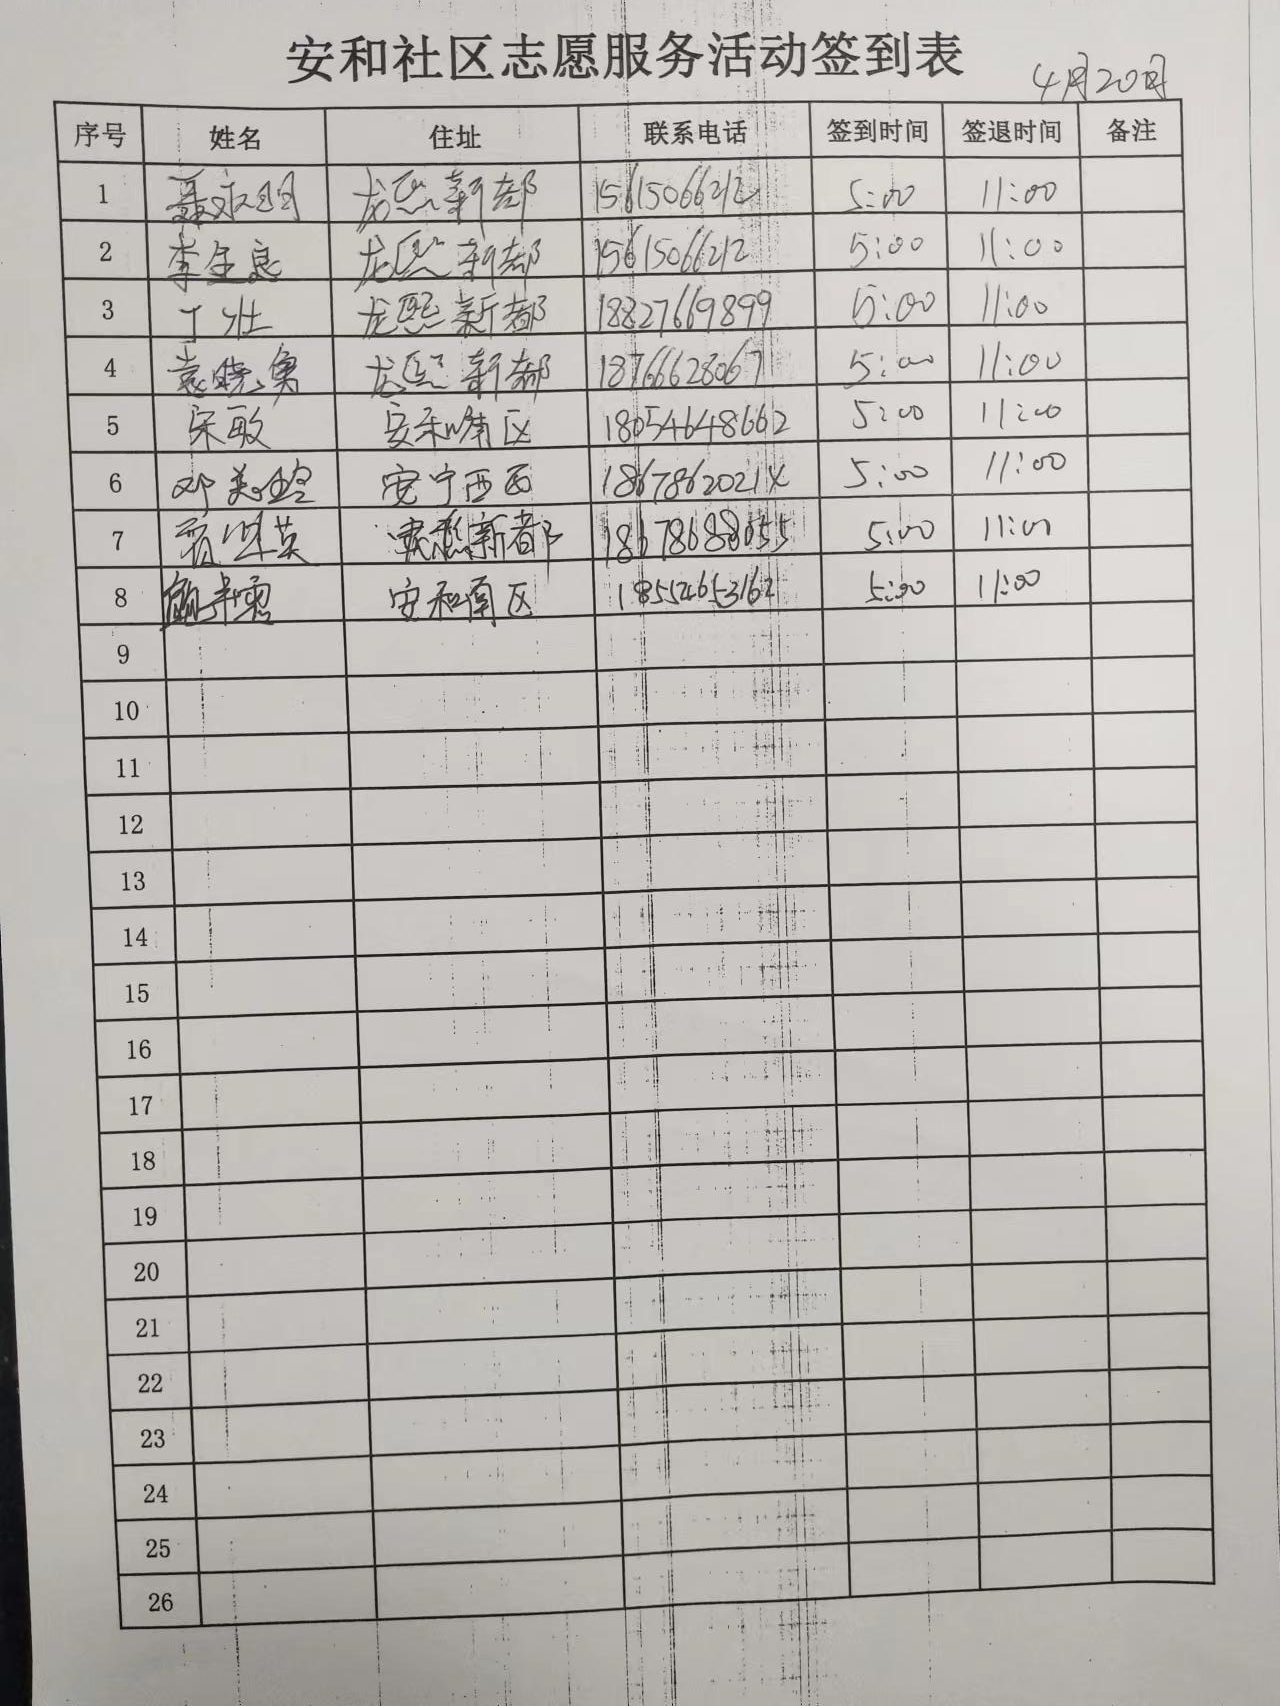 安和社区志愿服务活动签到表
4月20日
序号 姓名 住址 联系电话 签到时间 签退时间 备注
1 聂永明 龙熙新都 15615066212 5:00 11:00
2 李金良 龙熙新都 15615066212 5:00 11:00
3 丁壮 龙熙新都 18827669899 5:00 11:00
4 袁晓勇 龙熙新都 18766628067 5:00 11:00
5 宋敏 安和南区 18054648662 5:00 11:00
6 邓美 安宁西区 5:00 11:00
7 英 新都 18678688055 5:00 11:00
8 安和南区 18554653162 5:00 11:00
9
10
11
12
13
14
15
16
17
18
19
20
21
22
23
24
25
26